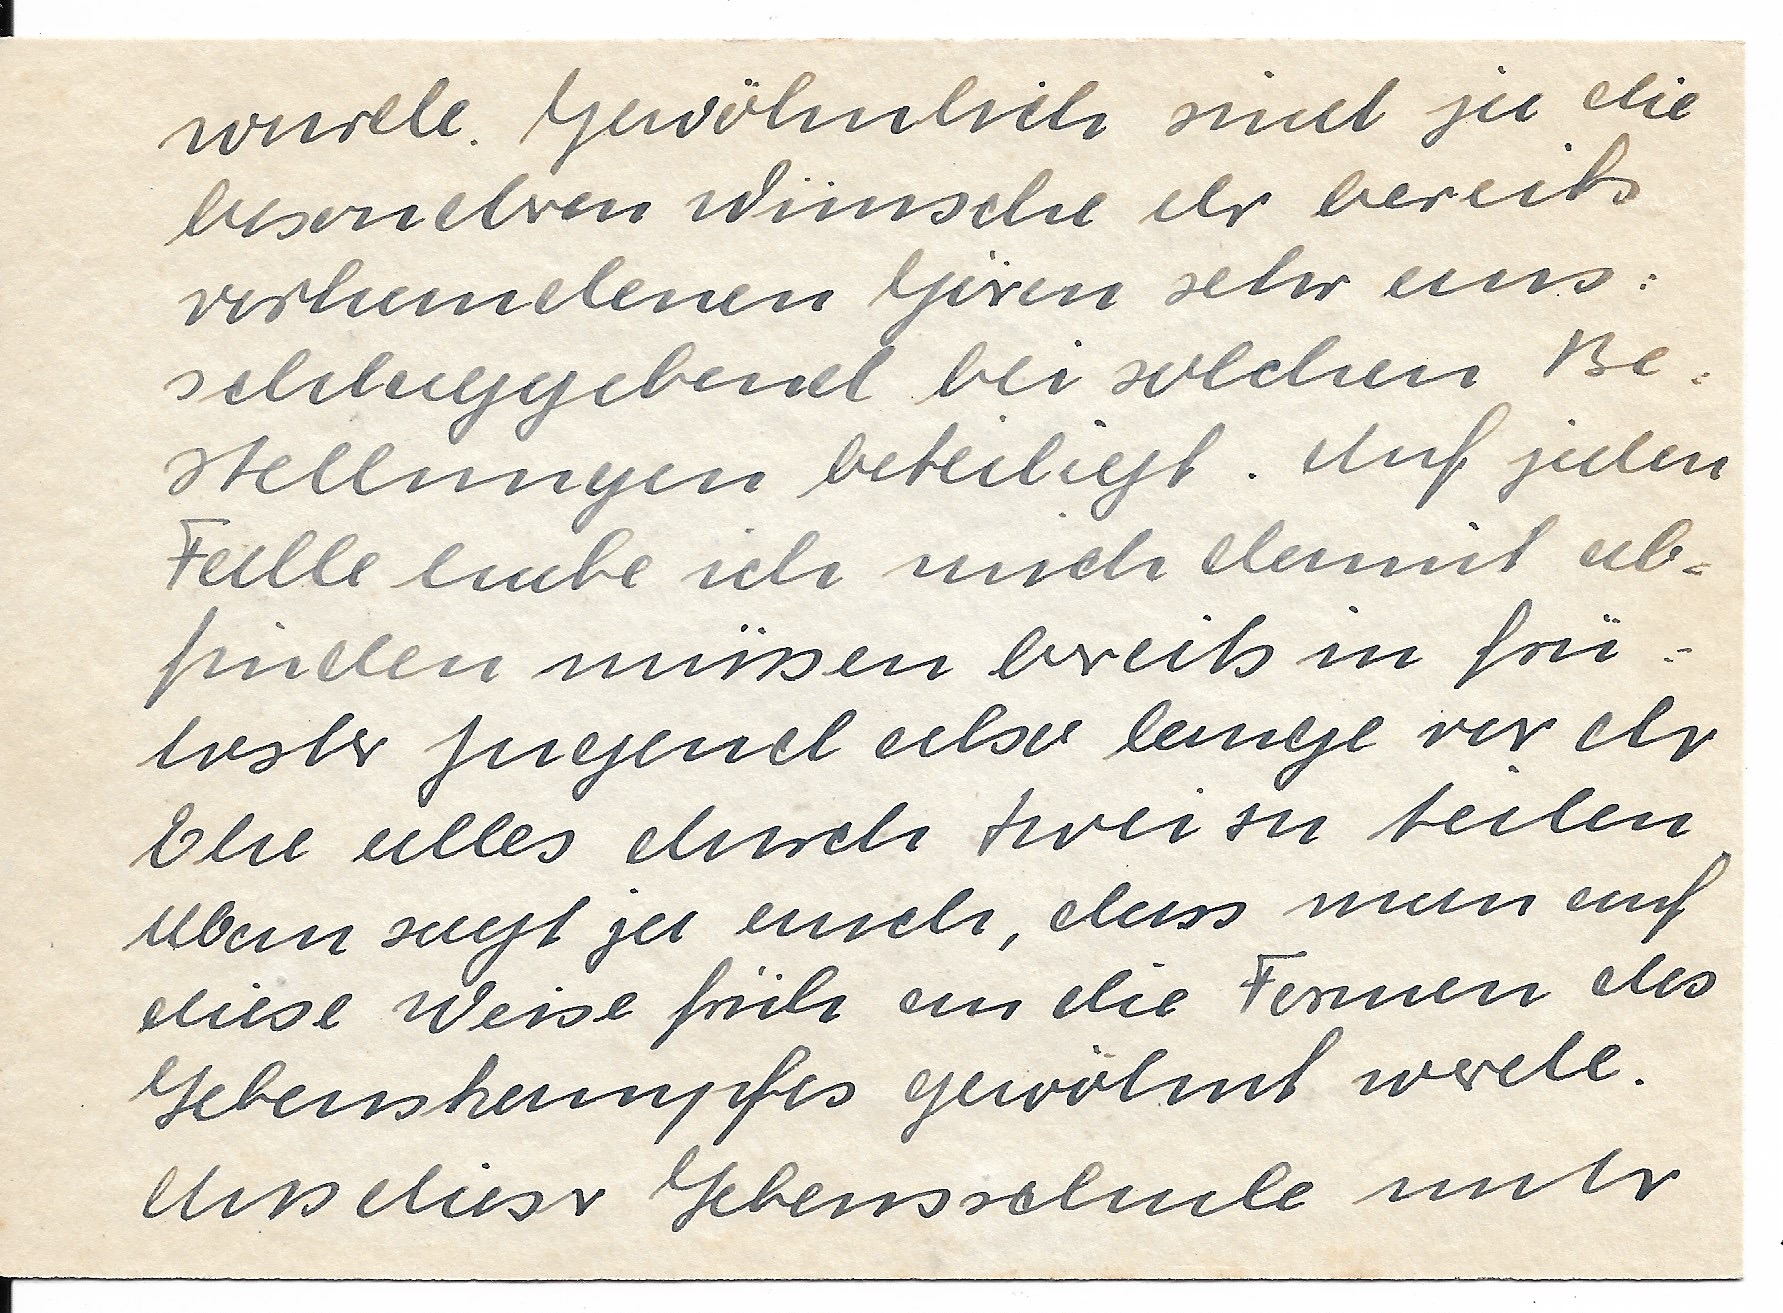 wurde. Gewöhnlich sind ja die
besonderen Wünsche der bereits
vorhandenen Gören sehr aus=
schlaggebend bei solchen Be=
stellungen beteiligt. Auf jeden
Falle habe ich mich damit ab=
finden müssen bereits in frü=
hester Jugend also lange vor der
Ehe alles durch zwei zu teilen
Man sagt ja auch, dass man auf
diese Weise früh an die Formen des
Lebenskampfes gewöhnt werde.
Aus dieser Lebensschule unter